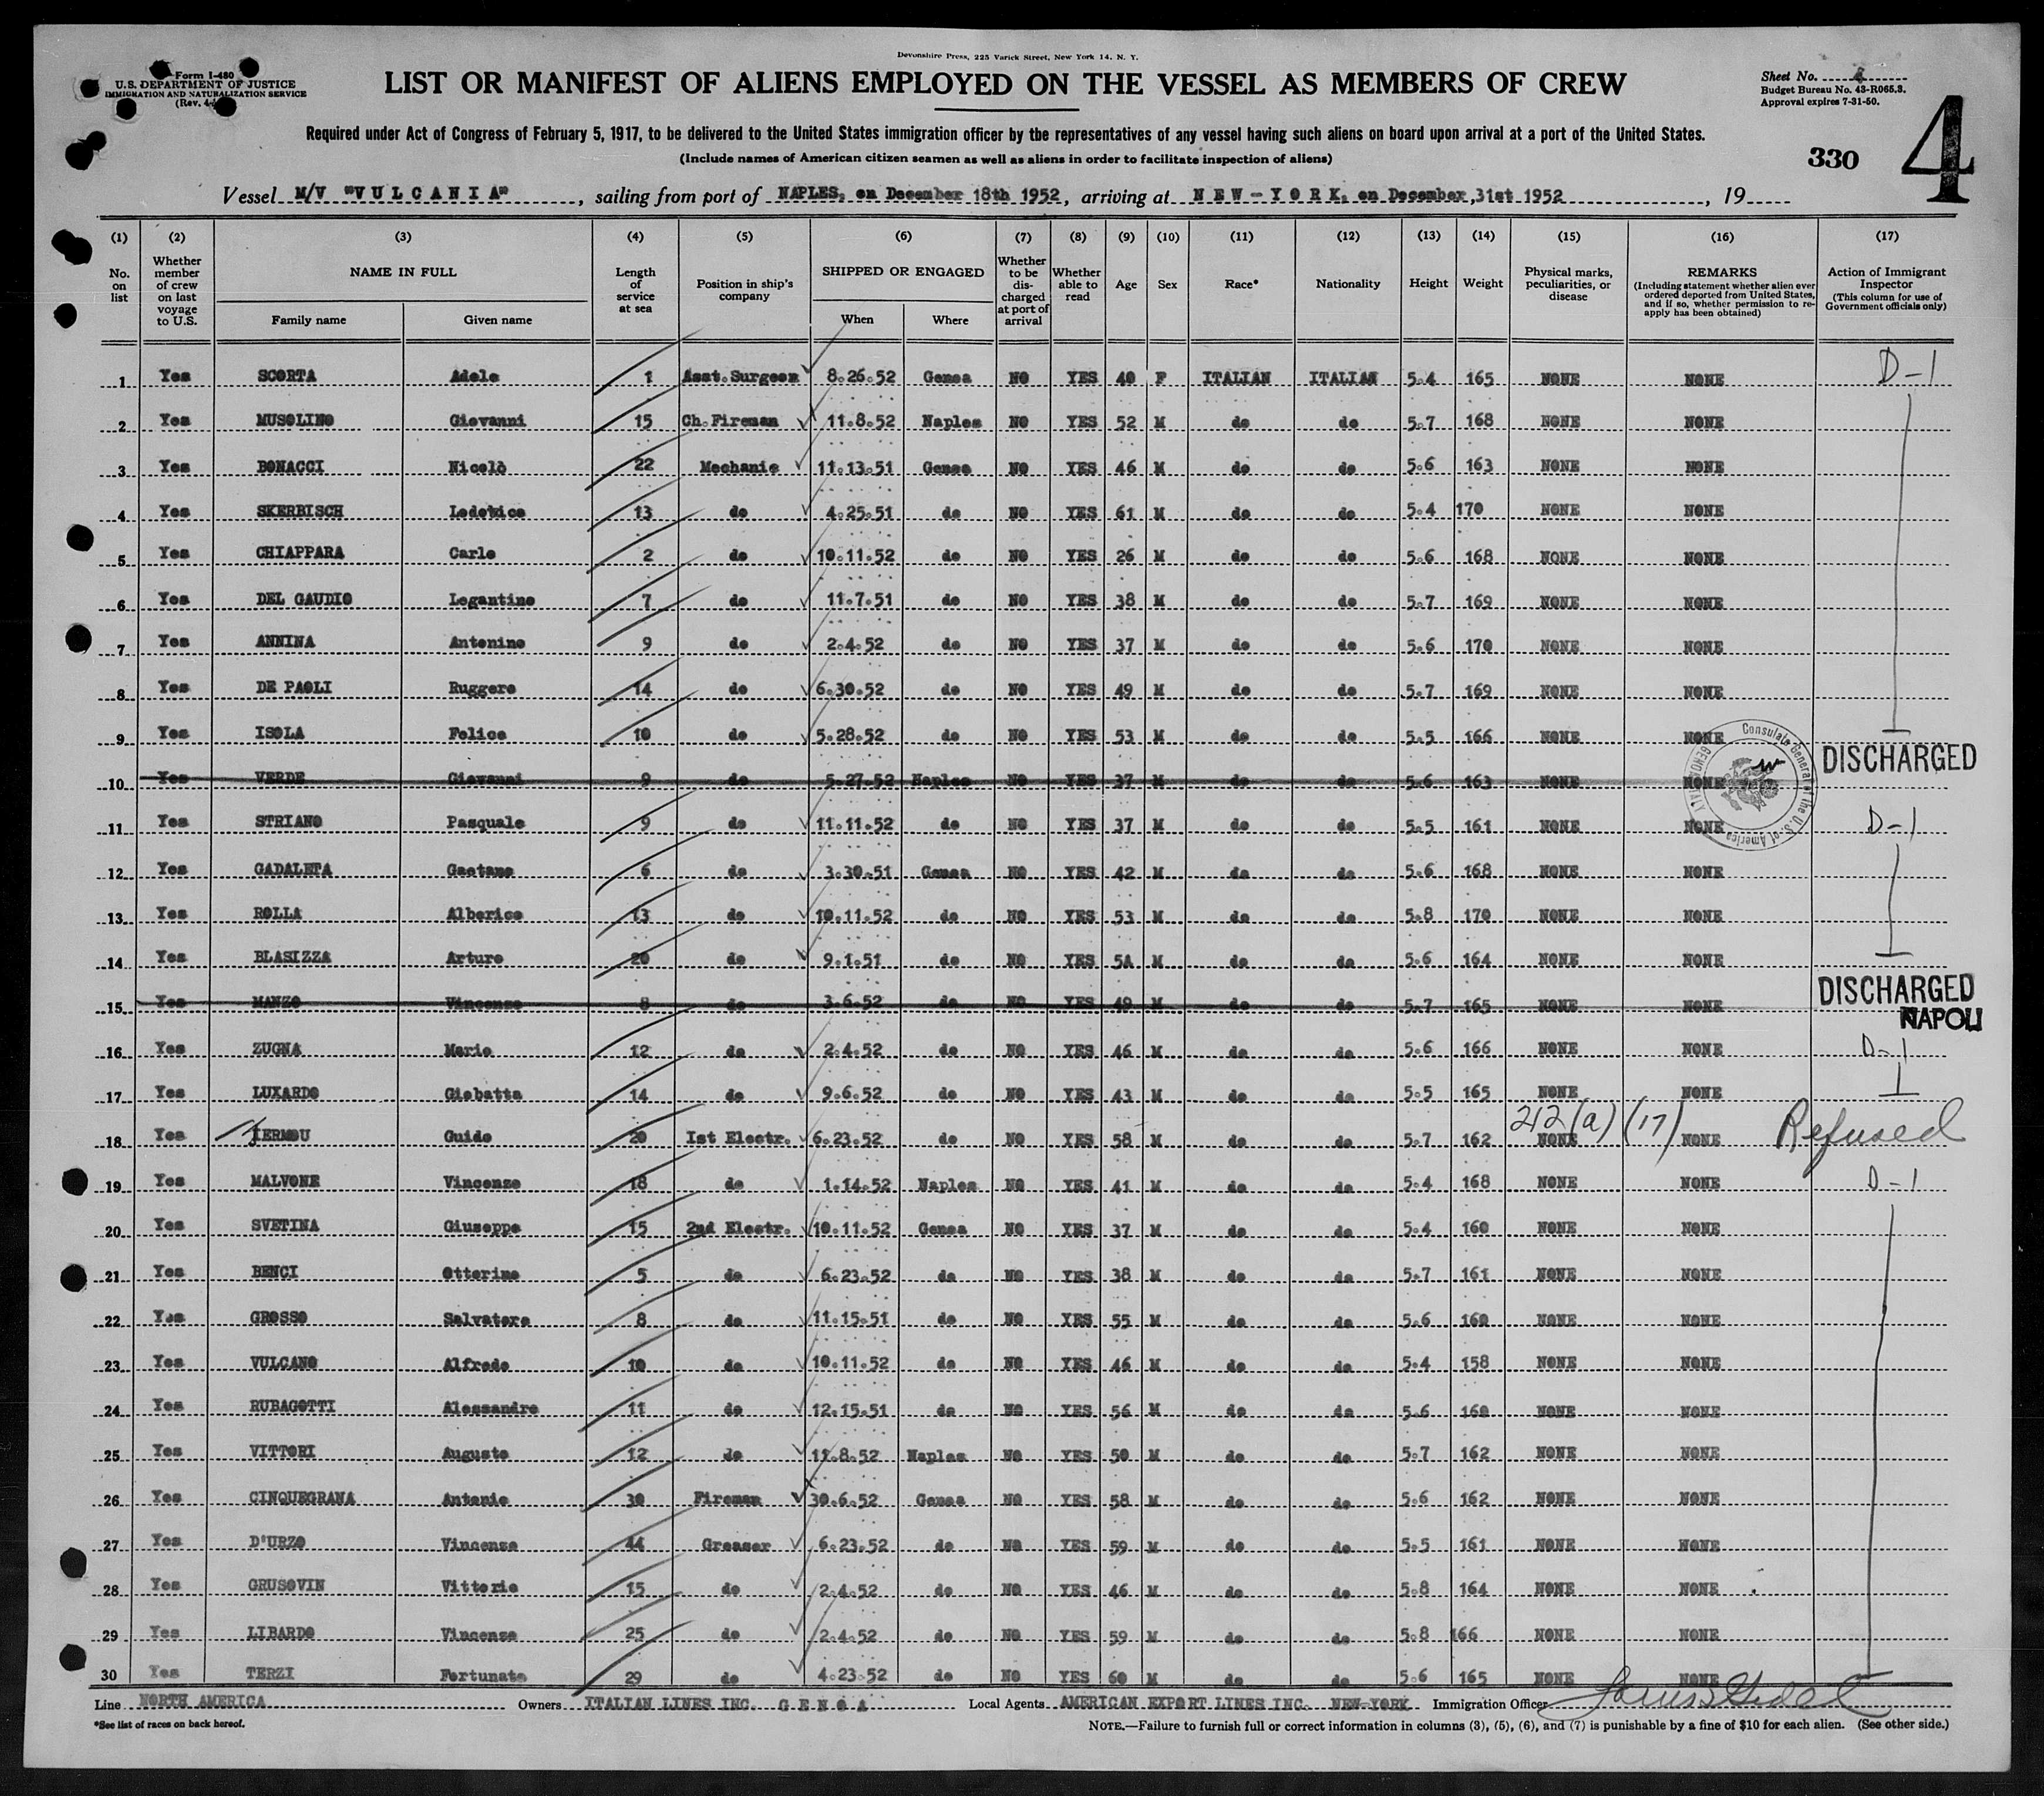 Devonshire Press, 225 Varick Street, New York 14, N. Y.
Form I-480
U.S. DEPARTMENT OF JUSTICE
IMMIGRATION AND NATURALIZATION SERVICE
(Rev.
LIST OR MANIFEST OF ALIENS EMPLOYED ON THE VESSEL AS MEMBERS OF CREW
Sheet No.
Budget Bureau No. 43-R065.3.
Approval expires 7-31-50.
Required under Act of Congress of February 5, 1917, to be delivered to the United States immigration officer by the representatives of any vessel having such aliens on board upon arrival at a port of the United States.
(Include names of American citizen seamen as well as aliens in order to facilitate inspection of aliens)
330 4
Vessel M/V "VULCANIA", sailing from port of NAPLES, on December 18th 1952, arriving at NEW-YORK, on December,31st 1952, 19
(1) (2) (3) (4) (5) (6) (7) (8) (9) (10) (11) (12) (13) (14) (15) (16) (17)
No. on list
Whether member of crew on last voyage to U.S.
NAME IN FULL
Family name
Given name
Length of service at sea
Position in ship's company
SHIPPED OR ENGAGED
When
Where
Whether to be discharged at port of arrival
Whether able to read
Age
Sex
Race*
Nationality
Height
Weight
Physical marks, peculiarities, or disease
REMARKS
(Including statement whether alien ever ordered deported from United States, and if so, whether permission to reapply has been obtained)
Action of Immigrant Inspector
(This column for use of Government officials only)
1 Yes SCORTA Adele 1 Asst.Surgeon 8.26.52 Genoa NO YES 40 F ITALIAN ITALIAN 5.4 165 NONE NONE D-1
2 Yes MUSOLINO Giovanni 15 Ch.Fireman 11.8.52 Naples NO YES 52 M do do 5.7 168 NONE NONE
3 Yes BONACCI Nicolò 22 Mechanic 11.13.51 Genoa NO YES 46 M do do 5.6 163 NONE NONE
4 Yes SKERBISCH Lodovico 13 do 4.25.51 do NO YES 61 M do do 5.4 170 NONE NONE
5 Yes CHIAPPARA Carlo 2 do 10.11.52 do NO YES 26 M do do 5.6 168 NONE NONE
6 Yes DEL GAUDIO Logantino 7 do 11.7.51 do NO YES 38 M do do 5.7 169 NONE NONE
7 Yes ANNINA Antonino 9 do 2.4.52 do NO YES 37 M do do 5.6 170 NONE NONE
8 Yes DE PAOLI Ruggero 14 do 6.30.52 do NO YES 49 M do do 5.7 169 NONE NONE
9 Yes ISOLA Felice 10 do 5.28.52 do NO YES 53 M do do 5.5 166 NONE NONE
10 Yes VERDE Giovanni 9 do 5.27.52 Naples NO YES 37 M do do 5.6 163 NONE NONE DISCHARGED
Consulate General of the U. S. of America
11 Yes STRIANO Pasquale 9 do 11.11.52 do NO YES 37 M do do 5.5 161 NONE NONE D-1
12 Yes GADALETA Gaetano 6 do 3.30.51 Genoa NO YES 42 M do do 5.6 168 NONE NONE
13 Yes ROLLA Alberico 13 do 10.11.52 do NO YES 53 M do do 5.8 170 NONE NONE
14 Yes BLASIZZA Arturo 20 do 9.1.51 do NO YES 5A M do do 5.6 164 NONE NONE
15 Yes MANZO Vincenzo 8 do 3.6.52 do NO YES 49 M do do 5.7 165 NONE NONE DISCHARGED NAPOLI
16 Yes ZUGNA Mario 12 do 2.4.52 do NO YES 46 M do do 5.6 166 NONE NONE D-1
17 Yes LUXARDO Giobatta 14 do 9.6.52 do NO YES 43 M do do 5.5 165 NONE NONE
18 Yes IERMOU Guido 20 Ist Electr. 6.23.52 do NO YES 58 M do do 5.7 162 NONE 212(a)(17) NONE Refused
19 Yes MALVONE Vincenzo 18 do 1.14.52 Naples NO YES 41 M do do 5.4 168 NONE NONE D-1
20 Yes SVETINA Giuseppe 15 2nd Electr. 10.11.52 Genoa NO YES 37 M do do 5.4 160 NONE NONE
21 Yes BENCI Otterino 5 do 6.23.52 do NO YES 38 M do do 5.7 161 NONE NONE
22 Yes GROSSO Salvatore 8 do 11.15.51 do NO YES 55 M do do 5.6 160 NONE NONE
23 Yes VULCANO Alfredo 10 do 10.11.52 do NO YES 46 M do do 5.4 158 NONE NONE
24 Yes RUBAGOTTI Alessandro 11 do 12.15.51 do NO YES 56 M do do 5.6 160 NONE NONE
25 Yes VITTORI Augusto 12 do 11.8.52 Naples NO YES 50 M do do 5.7 162 NONE NONE
26 Yes CINQUEGRANA Antonio 30 Fireman 30.6.52 Genoa NO YES 58 M do do 5.6 162 NONE NONE
27 Yes D'URZO Vincenzo 44 Greaser 6.23.52 do NO YES 59 M do do 5.5 161 NONE NONE
28 Yes GRUSOVIN Vittorio 15 do 2.4.52 do NO YES 46 M do do 5.8 164 NONE NONE
29 Yes LIBARDO Vincenzo 25 do 2.4.52 do NO YES 59 M do do 5.8 166 NONE NONE
30 Yes TERZI Fortunato 29 do 4.23.52 do NO YES 60 M do do 5.6 165 NONE NONE
Line NORTH AMERICA Owners ITALIAN LINES INC. GENOA Local Agents AMERICAN EXPORT LINES INC. NEW-YORK Immigration Officer
*See list of races on back hereof.
NOTE.—Failure to furnish full or correct information in columns (3), (5), (6), and (7) is punishable by a fine of $10 for each alien. (See other side.)